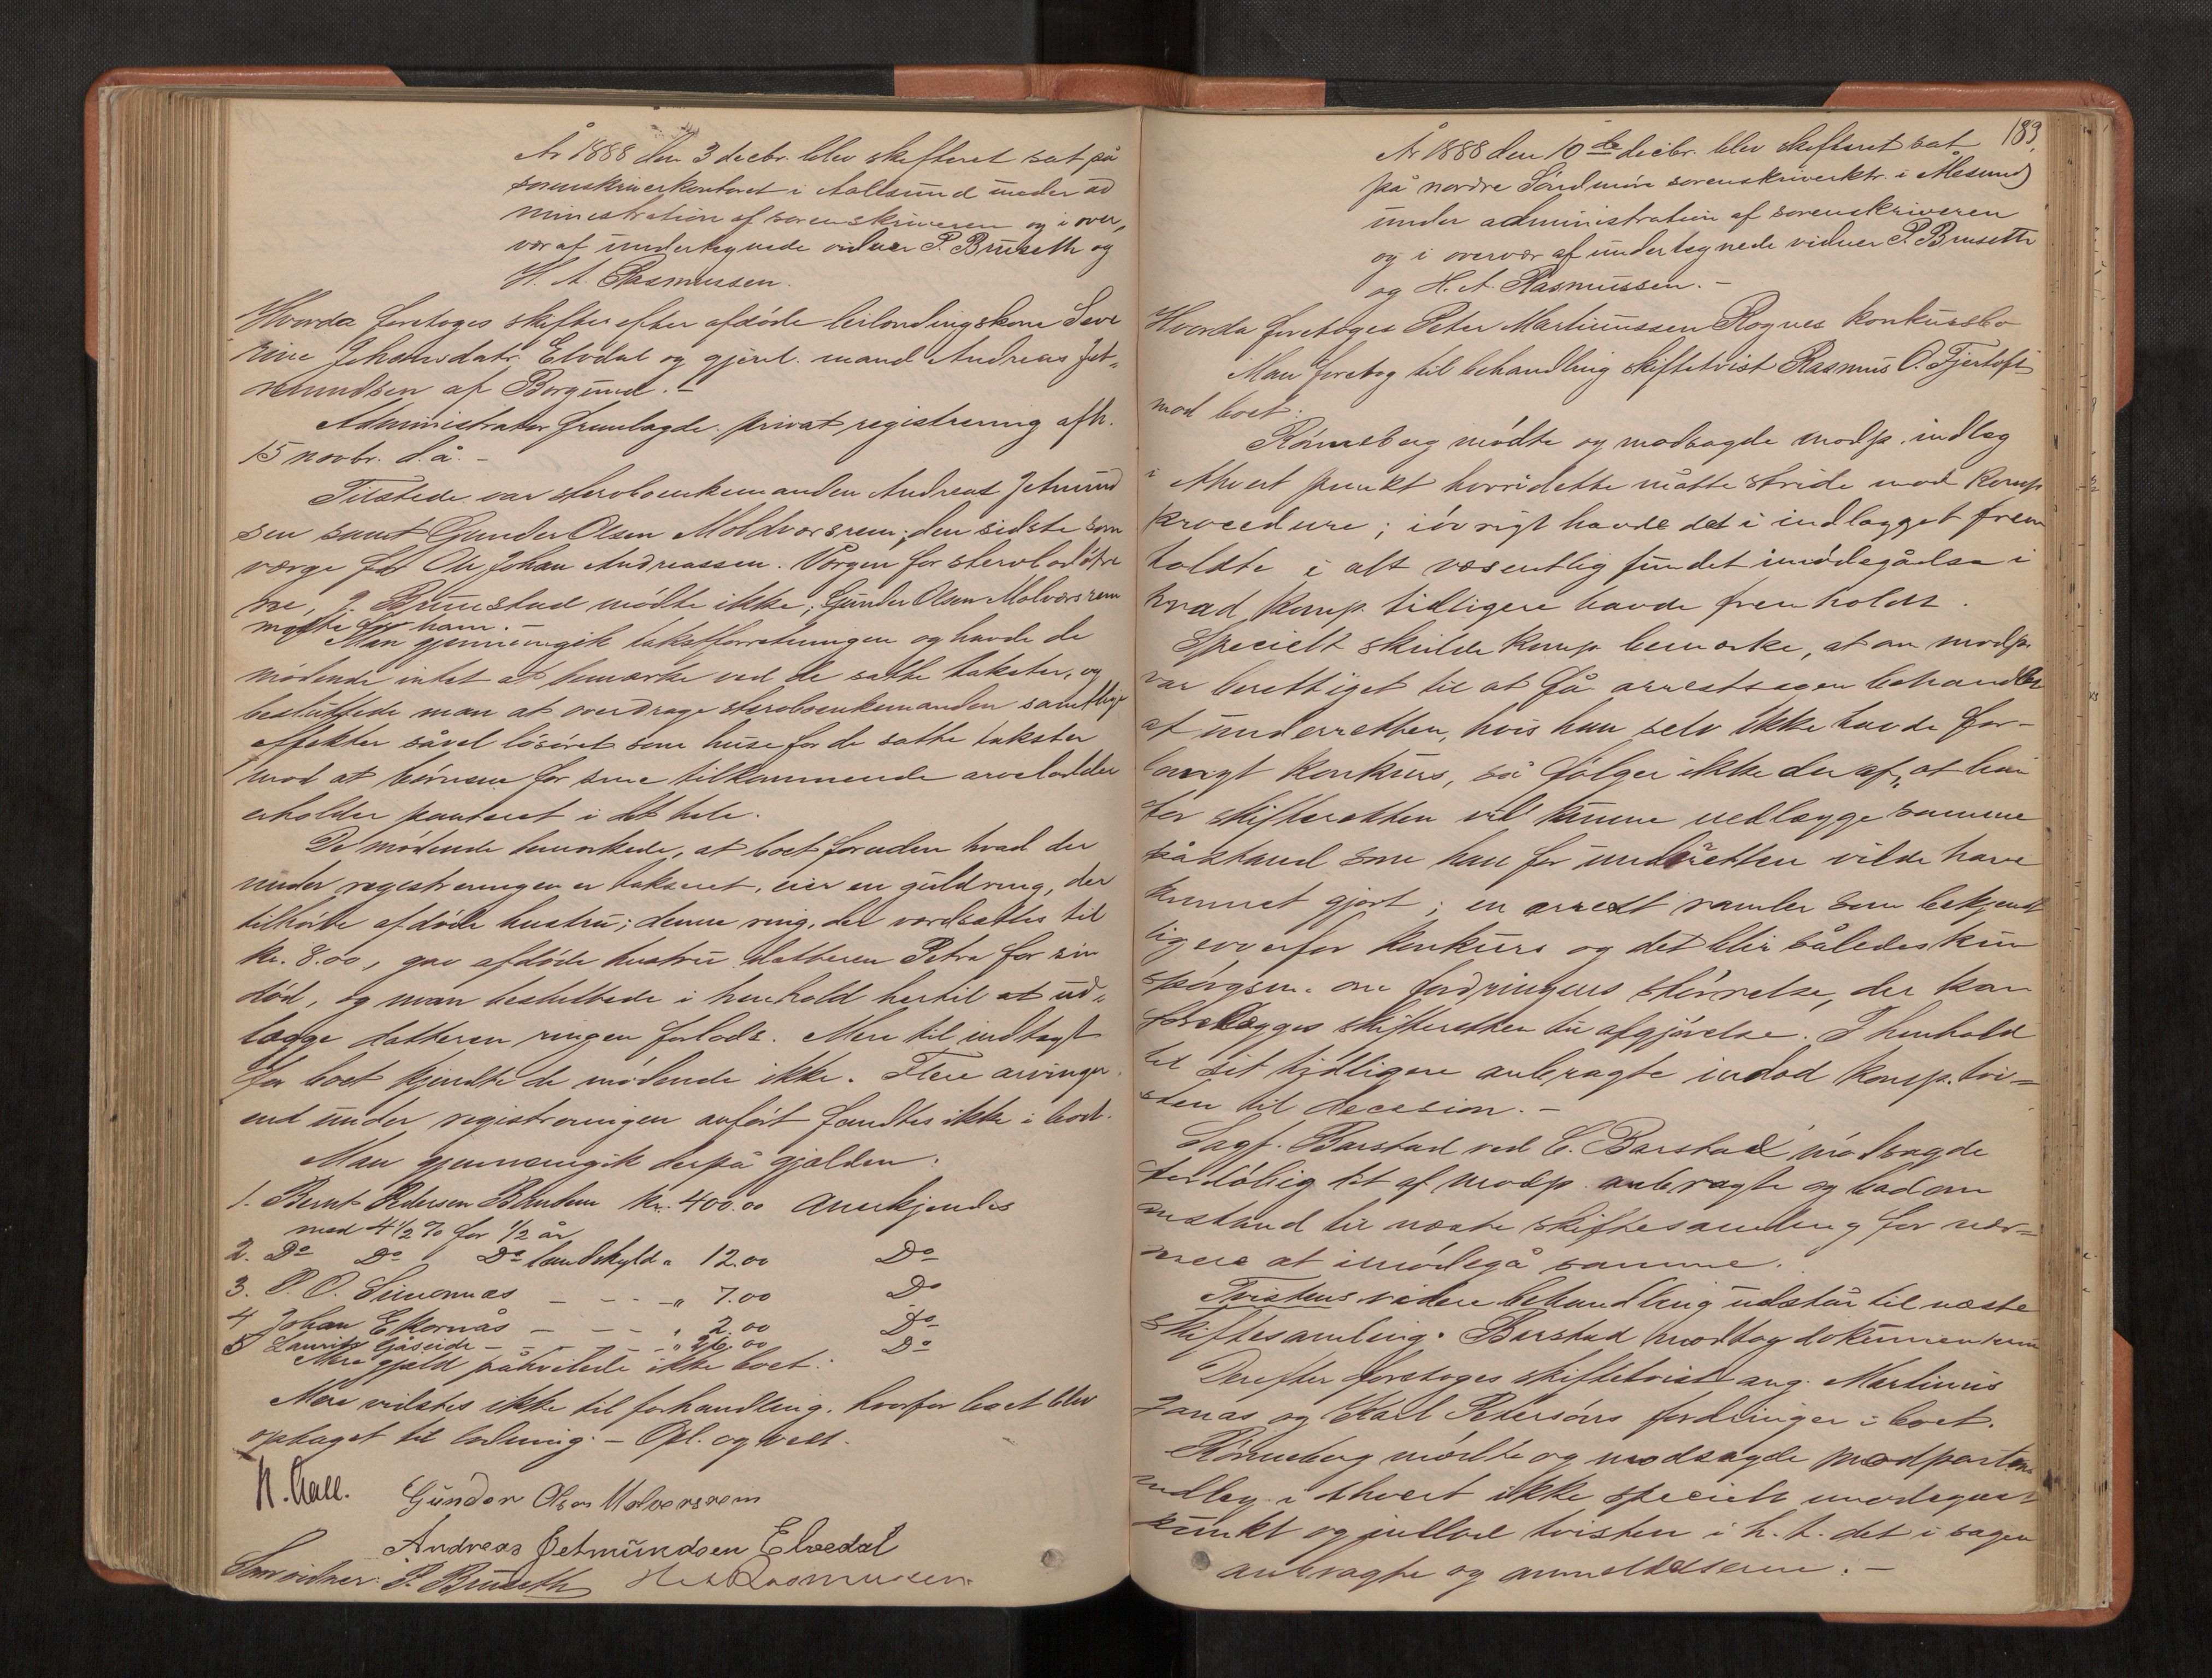 År 1888 den 3 decbr. blev skifteret sat på
sorenskriverkontoret i Aalesund under ad
ministration af sorenskriveren og i over,
vær af undertegnede vidner P. Bruseth og
H. A. Rasmussen.
Hvorda foretoges skifte efter afdøde leilændingskone Seve
rine Johansdatr. Elvdal og gjenl. mand Andreas Jet-
mundsen af Borgund. -
Administrator fremlagde privat registrering afh.
15 novbr. d. å. -
Tilstede var stervboenkemanden Andreas Jetmund
sen samt Gunder Olsen Moldværsrem; den sidste som
værge for Ole Johan Andreassen. Værgen for stervbodøtre
ne, J. Brunstad mødte ikke; Gunder Olsen Molværsrem
mødte for ham. -
Man gjennemgik takstforretningen og havde de
mødende intet at bemærke ved de satte takster, og
besluttede man at overdrage stervboenkemanden samtlige
effekter såvel løsøret som huse for de satte takster
mod at børnene for sine tilkommende arvelodder
erholder panteret i det hele.
De mødende bemærkede, at boet foruden hvad der
under registreringen er takseret, eier en guldring, der
tilhørte afdøde hustru; denne ring, der værdsattes til
kr. 8.00, gav afdøde hustru datteren Petra før sin
død, og man besluttede i henhold hertil at ud-
lægge datteren ringen forlods. Mere til indtægt
for boet kjendte de mødende ikke. Flere arvinger
end under registreringen anført fandtes ikke i boet.
Man gjennemgik derpå gjælden.
1. Bernt Pedersen kr. 400.00 Anerkjendes
med 4½ % for ½ år
2. Do Do Do landskyld " 12.00 Do
3. P. O. Simonnæs - - - " 7.00 Do
4 Johan Ekornås - - - " 2.00 Do
5 Laurits Gåseide - - - " 26.00 Do
Mere gjæld påhvilede ikke boet.
Mere vidstes ikke til forhandling, hvorfor boet blev
optaget til lodning. - Opl. og vedt.
H. Gunder Olsen Molversrem
Andreas Jetmundsen Elvedal
Som vidner: P. Bruseth H A Rasmussen
183.
År 1888 den 10de decbr. blev skifteret sat
på nordre Søndmøre sorenskriverktr. i Ålesund
under administration af sorenskriveren
og i overvær af undertegnede vidner P. Bruseth
og H. A. Rasmussen. -
Hvorda foretoges Peter Martinussen Rognes konkursbo
Man foretog til behandling skiftetvist Rasmus O. Fjertoft
mod boet:
Rønneberg mødte og modsagde modp. indlæg
i ethvert punkt hvori dette måtte stride mod komp
procedure; iøvrigt havde det i indlægget frem
holdte i alt væsentlig fundet imødegåelse i
hvad komp. tidligere havde fremholdt.
Specielt skulde komp. bemærke, at om modp.
var berettiget til at få arrestsagen behandlet
af underretten, hvis han selv ikke havde for-
langt konkurs, så følger ikke deraf, at han
for skifteretten vil kunne nedlægge samme
påstand som han for underretten vilde have
kunnet gjort; en arrest ramler som bekjendt
lig overfor konkurs og det blir således kun
spørgsm. om fordringens størrelse, der kan
forelægges skifteretten til afgjørelse. I henhold
til sit tidligere anbragte indlod komp. tvi-
sten til decesion. -
Sagf. Barstad ved C. Barstad modsagde
foreløbig det af modp. anbragte og bad om
anstand til næste skiftesamling for nær-
mere at imødegå samme.
Tvistens videre behandling udstår til næste
skiftesamling. Barstad modtog dokumenterne
Derefter foretoges skiftetvist ang. Martinus
Jonas og Karl Petersøns fordringer i boet.
Rønneberg mødte og modsagde modpartens
indlæg i ethvert ikke specielt imødegået
punkt og indlod tvisten i h. t. det i sagen
anbragte og anmeldelserne. -